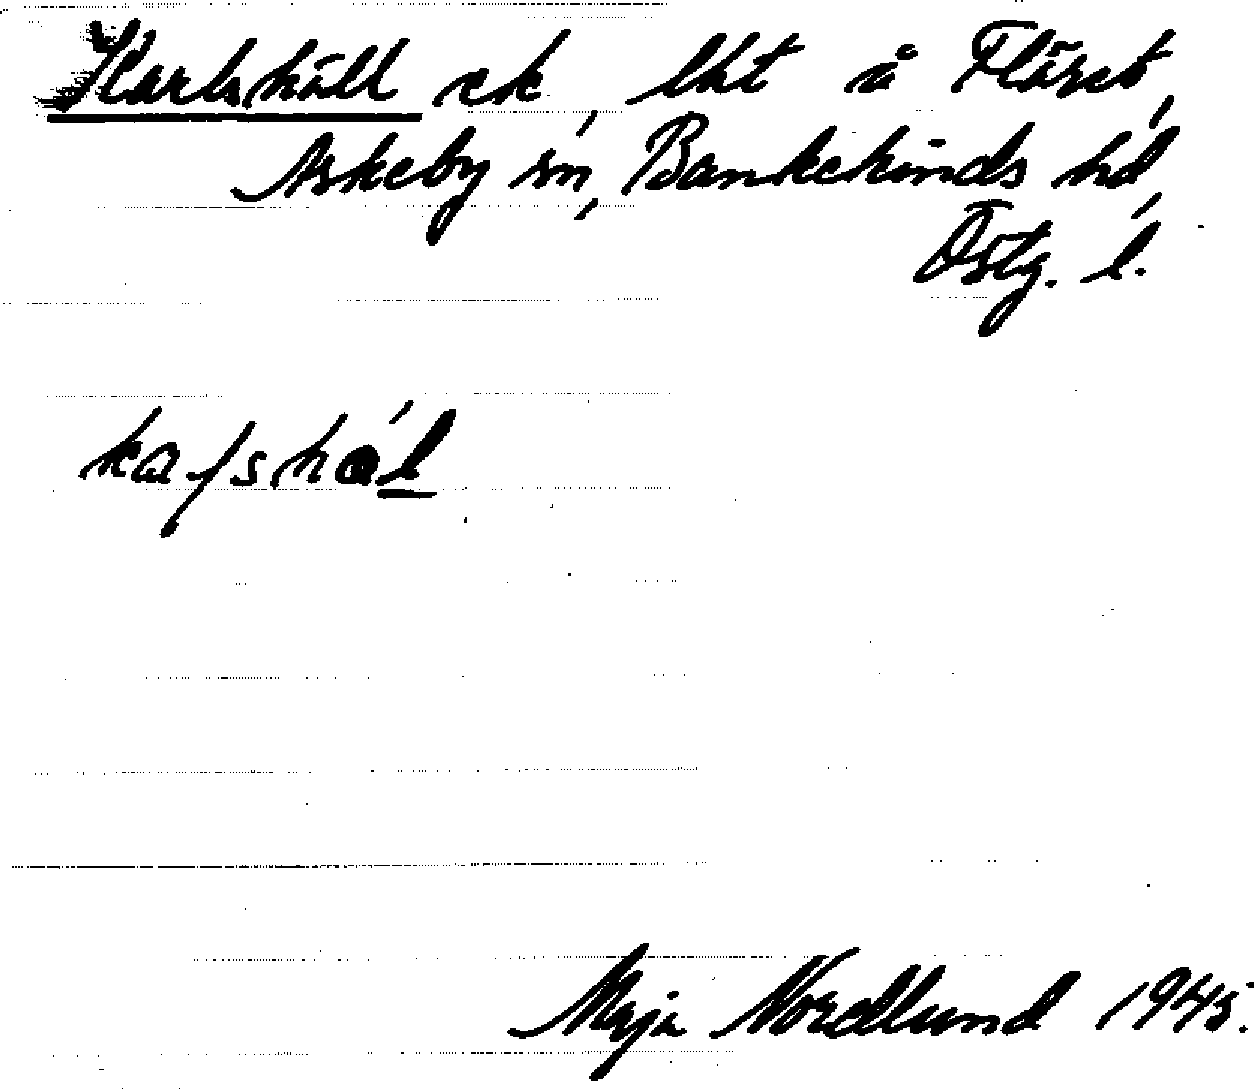 Karlshäll ek, lht å Fläret,
Askeby sn, Bankekinds hd,
Östg. l.
ka/shál
Maja Nordlund 1945.